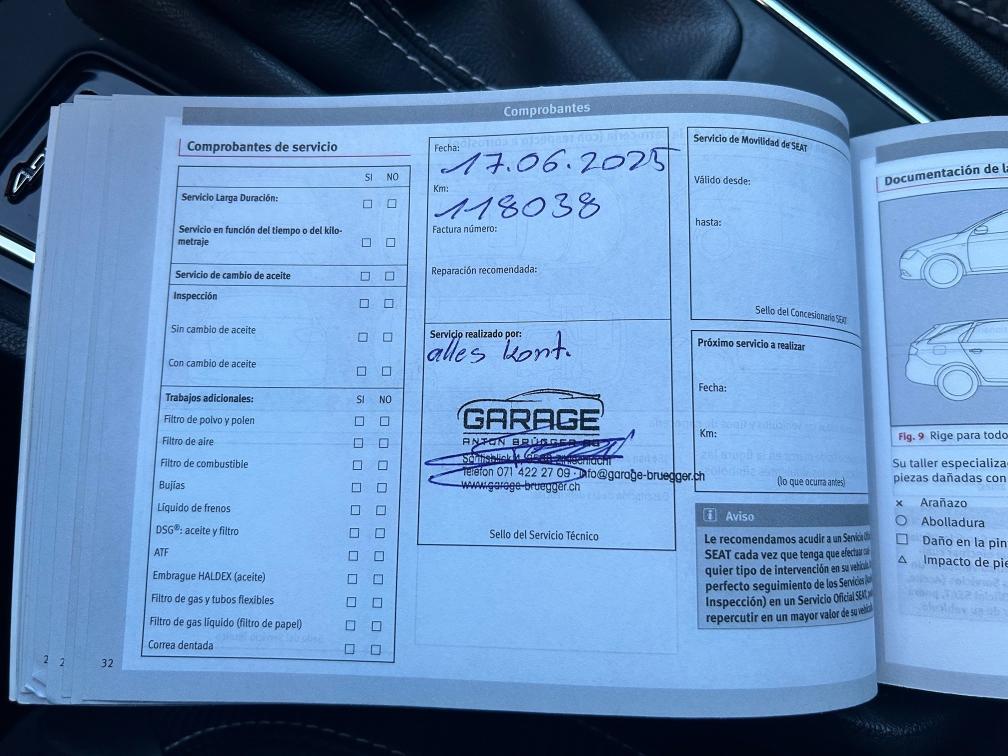 Comprobantes
Comprobantes de servicio
SI NO
Servicio Larga Duración:
Servicio en función del tiempo o del kilo-
metraje
Servicio de cambio de aceite
Inspección
Sin cambio de aceite
Con cambio de aceite
Trabajos adicionales: SI NO
Filtro de polvo y polen
Filtro de aire
Filtro de combustible
Bujías
Líquido de frenos
DSG®: aceite y filtro
ATF
Embrague HALDEX (aceite)
Filtro de gas y tubos flexibles
Filtro de gas líquido (filtro de papel)
Correa dentada
32
Fecha:
17.06.2025
Km:
118038
Factura número:
Reparación recomendada:
Servicio realizado por:
alles kont.
GARAGE
ANTON BRÜGGER AG
Telefon 071 422 27 09 · info@garage-bruegger.ch
www.garage-bruegger.ch
Sello del Servicio Técnico
Servicio de Movilidad de SEAT
Válido desde:
hasta:
Sello del Concesionario SEAT
Próximo servicio a realizar
Fecha:
Km:
(lo que ocurra antes)
Aviso
Le recomendamos acudir a un Servicio
SEAT cada vez que tenga que efectuar
quier tipo de intervención en su vehículo.
perfecto seguimiento de los Servicios
Inspección) en un Servicio Oficial SEAT,
repercutir en un mayor valor de su vehículo
Documentación de la
Fig. 9 Rige para todo
Su taller especializa
piezas dañadas con
× Arañazo
○ Abolladura
□ Daño en la pin
△ Impacto de pie